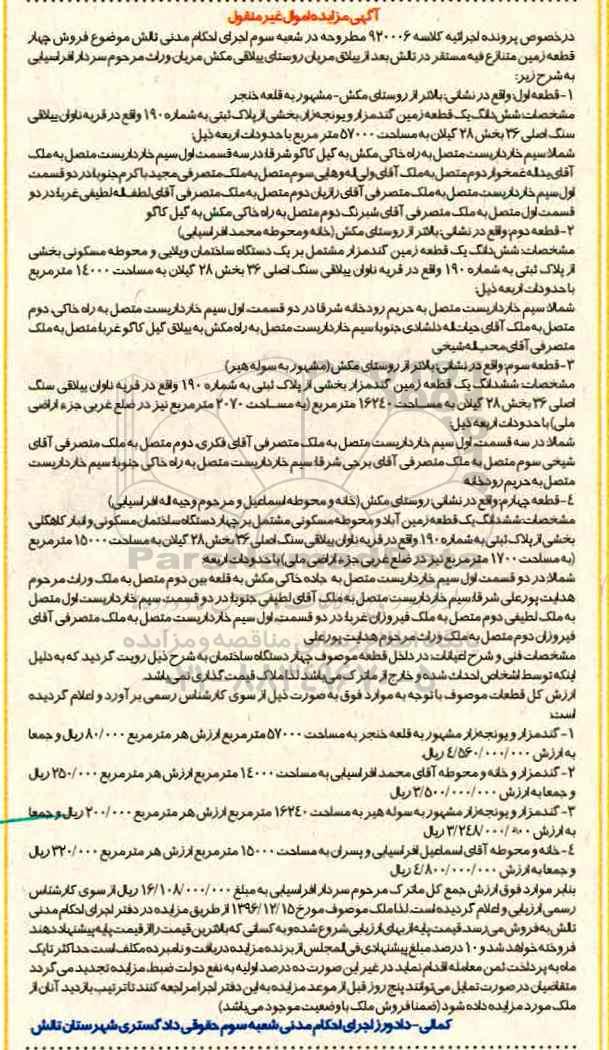 آگهی مزایده اموال غیرمنقول
درخصوص پرونده اجرائیه کلاسه ۹۲۰۰۰۶ مطروحه در شعبه سوم اجرای احکام مدنی تالش موضوع فروش چهار
قطعه زمین متنازع فیه مستقر در تالش بعد از ییلاق مریان روستای ییلاقی مکش مریان وراث مرحوم سردار افراسیابی
به شرح زیر:
۱- قطعه اول: واقع در نشانی: بالاتر از روستای مکش- مشهور به قلعه خنجر
مشخصات: شش دانگ یک قطعه زمین گندمزار و یونجه زار، بخشی از پلاک ثبتی به شماره ۱۹۰ واقع در قریه ناوان ییلاقی
سنگ اصلی ۳۶ بخش ۲۸ گیلان به مساحت ۵۷۰۰۰ متر مربع با حدودات اربعه ذیل:
شمالا: سیم خارداریست متصل به راه خاکی مکش به گیل کاگو شرقا: در سه قسمت اول سیم خارداریست متصل به ملک
آقای یداله غمخوار دوم متصل به ملک آقای ولی اله وهابی سوم متصل به ملک متصرفی مجید باکرم جنوبا: در دو قسمت
اول سیم خارداریست متصل به ملک متصرفی آقای رازیان دوم متصل به ملک متصرفی آقای لطف اله لطیفی غربا: در دو
قسمت اول متصل به ملک متصرفی آقای شبرنگ دوم متصل به راه خاکی مکش به گیل کاگو
۲- قطعه دوم: واقع در نشانی: بالاتر از روستای مکش (خانه و محوطه محمد افراسیابی)
مشخصات: شش دانگ یک قطعه زمین گندمزار مشتمل بر یک دستگاه ساختمان ویلایی و محوطه مسکونی بخشی
از پلاک ثبتی به شماره ۱۹۰ واقع در قریه ناوان ییلاقی سنگ اصلی ۳۶ بخش ۲۸ گیلان به مساحت ۱۴۰۰۰ مترمربع
با حدودات اربعه ذیل:
شمالا: سیم خارداریست متصل به حریم رودخانه شرقا: در دو قسمت، اول سیم خارداریست متصل به راه خاکی، دوم
متصل به ملک آقای حیات اله دلشادی جنوبا: سیم خارداریست متصل به راه مکش به ییلاق گیل کاگو غربا: متصل به ملک
متصرفی آقای محب اله شیخی
۳- قطعه سوم: واقع در نشانی: بالاتر از روستای مکش (مشهور به سوله هیر)
مشخصات: ششدانگ یک قطعه زمین گندمزار بخشی از پلاک ثبتی به شماره ۱۹۰ واقع در قریه ناوان ییلاقی سنگ
اصلی ۳۶ بخش ۲۸ گیلان به مساحت ۱۶۲۴۰ مترمربع (به مساحت ۲۰۷۰ مترمربع نیز در ضلع غربی جزء اراضی
ملی) با حدودات اربعه ذیل:
شمالا: در سه قسمت، اول سیم خارداریست متصل به ملک متصرفی آقای فکری، دوم متصل به ملک متصرفی آقای
شیخی سوم متصل به ملک متصرفی آقای برجی شرقا: سیم خارداریست متصل به راه خاکی جنوبا: سیم خارداریست
متصل به حریم رودخانه
۴- قطعه چهارم: واقع در نشانی: روستای مکش (خانه و محوطه اسماعیل و مرحوم وجیه اله افراسیابی)
مشخصات: ششدانگ یک قطعه زمین آباد و محوطه مسکونی مشتمل بر چهار دستگاه ساختمان مسکونی و انبار کاهگلی،
بخشی از پلاک ثبتی به شماره ۱۹۰ واقع در قریه ناوان ییلاقی سنگ اصلی ۳۶ بخش ۲۸ گیلان به مساحت ۱۵۰۰۰ مترمربع
(به مساحت ۱۷۰۰ مترمربع نیز در ضلع غربی جزء اراضی ملی) با حدودات اربعه:
شمالا: در دو قسمت اول سیم خارداریست متصل به جاده خاکی مکش به قلعه بین دوم متصل به ملک وراث مرحوم
هدایت پورعلی شرقا: سیم خارداریست متصل به ملک آقای لطیفی جنوبا: در دو قسمت، سیم خارداریست اول متصل
به ملک لطیفی دوم متصل به ملک فیروزان غربا: در دو قسمت، اول سیم خارداریست متصل به ملک متصرفی آقای
فیروزان دوم متصل به ملک وراث مرحوم هدایت پورعلی
مشخصات فنی و شرح اعیانات: در داخل قطعه موصوف چهار دستگاه ساختمان به شرح ذیل رویت گردید که به دلیل
اینکه توسط اشخاص احداث شده و خارج از ماترک می باشد لذا ملاک قیمت گذاری نمی باشد.
ارزش کل قطعات موصوف با توجه به موارد فوق به صورت ذیل از سوی کارشناس رسمی برآورد و اعلام گردیده
است:
۱- گندمزار و یونجه زار مشهور به قلعه خنجر به مساحت ۵۷۰۰۰ مترمربع ارزش هر مترمربع ۸۰/۰۰۰ ریال و جمعا
به ارزش ۴/۵۶۰/۰۰۰/۰۰۰ ریال.
۲- گندمزار و خانه و محوطه آقای محمد افراسیابی به مساحت ۱۴۰۰۰ مترمربع ارزش هر مترمربع ۲۵۰/۰۰۰ ریال
و جمعا به ارزش ۳/۵۰۰/۰۰۰/۰۰۰ ریال
۳- گندمزار و یونجه زار مشهور به سوله هیر به مساحت ۱۶۲۴۰ مترمربع ارزش هر مترمربع ۲۰۰/۰۰۰ ریال و جمعا
به ارزش ۳/۲۴۸/۰۰۰/۰۰۰ ریال
۴- خانه و محوطه آقای اسماعیل افراسیابی و پسران به مساحت ۱۵۰۰۰ مترمربع ارزش هر مترمربع ۳۲۰/۰۰۰ ریال
و جمعا به ارزش ۴/۸۰۰/۰۰۰/۰۰۰ ریال
بنابر موارد فوق ارزش جمع کل ماترک مرحوم سردار افراسیابی به مبلغ ۱۶/۱۰۸/۰۰۰/۰۰۰ ریال از سوی کارشناس
رسمی ارزیابی و اعلام گردیده است. لذا ملک موصوف مورخ ۱۳۹۶/۱۲/۱۵ از طریق مزایده در دفتر اجرای احکام مدنی
تالش به فروش می رسد، قیمت پایه از بهای ارزیابی شروع شده و به کسانی که بالاترین قیمت را از قیمت پایه پیشنهاد دهند
فروخته خواهد شد و ۱۰ درصد مبلغ پیشنهادی فی المجلس از برنده مزایده دریافت و نامبرده مکلف است حداکثر تا یک
ماه به پرداخت ثمن معامله اقدام نماید در غیر این صورت ده درصد اولیه به نفع دولت ضبط، مزایده تجدید می گردد
متقاضیان در صورت تمایل می توانند پنج روز قبل از موعد مزایده به این دفتر اجرا مراجعه کنند تا ترتیب بازدید آنان از
ملک مورد مزایده داده شود (ضمنا فروش ملک با وضعیت موجود می باشد)
کمالی- دادورز اجرای احکام مدنی شعبه سوم حقوقی دادگستری شهرستان تالش